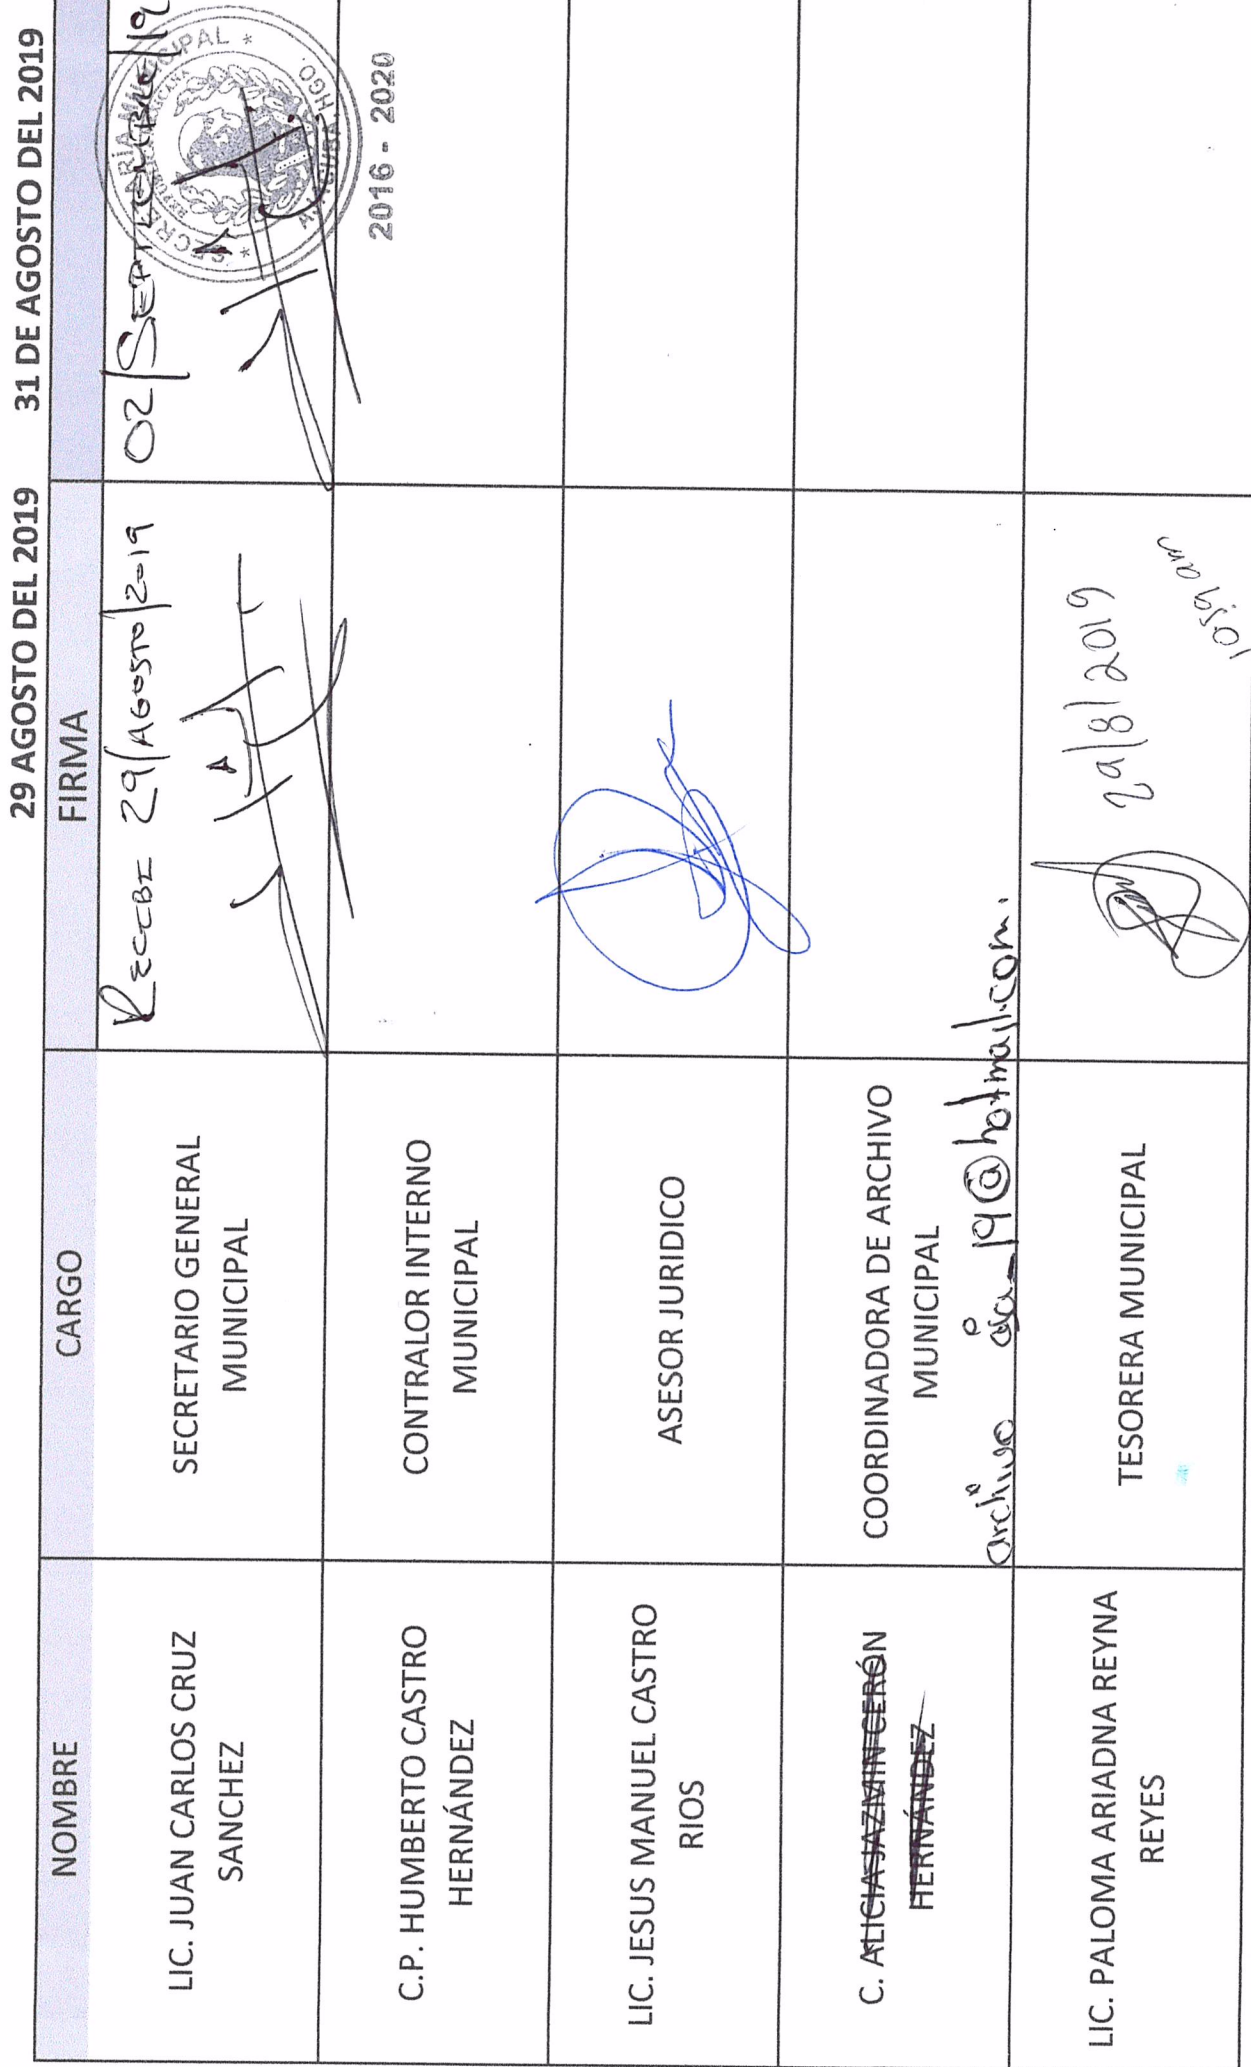 29 AGOSTO DEL 2019 31 DE AGOSTO DEL 2019
NOMBRE CARGO FIRMA
LIC. JUAN CARLOS CRUZ
SANCHEZ
SECRETARIO GENERAL
MUNICIPAL
RECIBI 29/AGOSTO/2019
02/SEPTIEMBRE/19
SECRETARÍA MUNICIPAL
HGO.
2016 - 2020
C.P. HUMBERTO CASTRO
HERNÁNDEZ
CONTRALOR INTERNO
MUNICIPAL
LIC. JESUS MANUEL CASTRO
RIOS
ASESOR JURIDICO
C. ALICIA JAZMIN CERÓN
HERNÁNDEZ
COORDINADORA DE ARCHIVO
MUNICIPAL
archivo
19@hotmail.com.
LIC. PALOMA ARIADNA REYNA
REYES
TESORERA MUNICIPAL
29/8/2019
1059 am